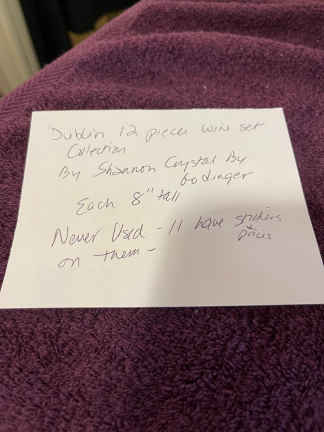 Dublin 12 pieces wine set
Colection
By Shannon Crystal By
Godinger
Each 8" tall
Never Used - 11 have stickers
+ prices
on them -